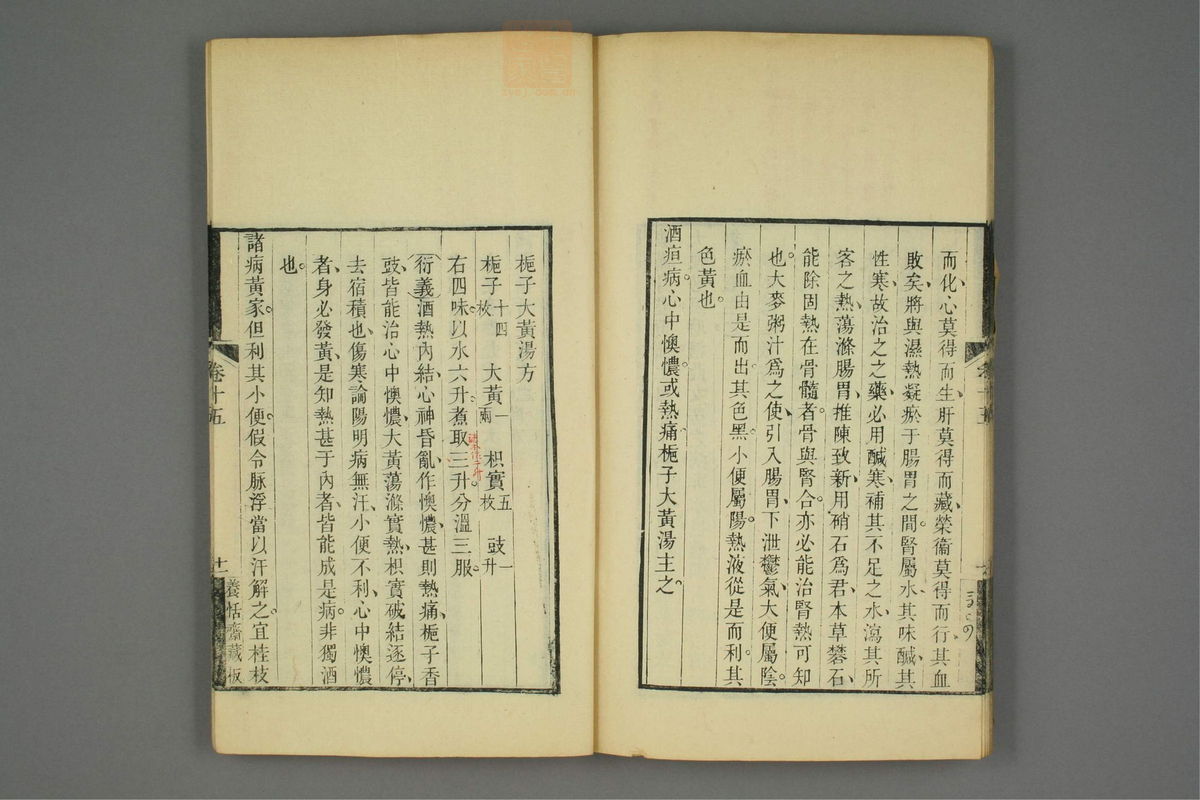 而化心莫得而生肝莫得而藏榮衞莫得而行其血
敗矣將與濕熱凝瘀于腸胃之間腎屬水其味鹹其
性寒故治之之藥必用鹹寒補其不足之水瀉其所
客之熱蕩滌腸胃推陳致新用硝石爲君本草礬石
能除固熱在骨髓者骨與腎合亦必能治腎熱可知
也大麥粥汁爲之使引入腸胃下泄鬱氣大便屬陰
瘀血由是而出其色黑小便屬陽熱液從是而利其
色黃也
酒疸病心中懊憹或熱痛梔子大黃湯主之
卷十五
梔子大黃湯方
梔子十四枚 大黃一兩 枳實五枚 豉一升
右四味以水六升煮取三升分溫三服
衍義酒熱內結心神昏亂作懊憹甚則熱痛梔子香
豉皆能治心中懊憹大黃蕩滌實熱枳實破結逐停
去宿積也傷寒論陽明病無汗小便不利心中懊憹
者身必發黃是知熱甚于內者皆能成是病非獨酒
也
諸病黃家但利其小便假令脉浮當以汗解之宜桂枝
卷十五
十一
養恬齋藏板